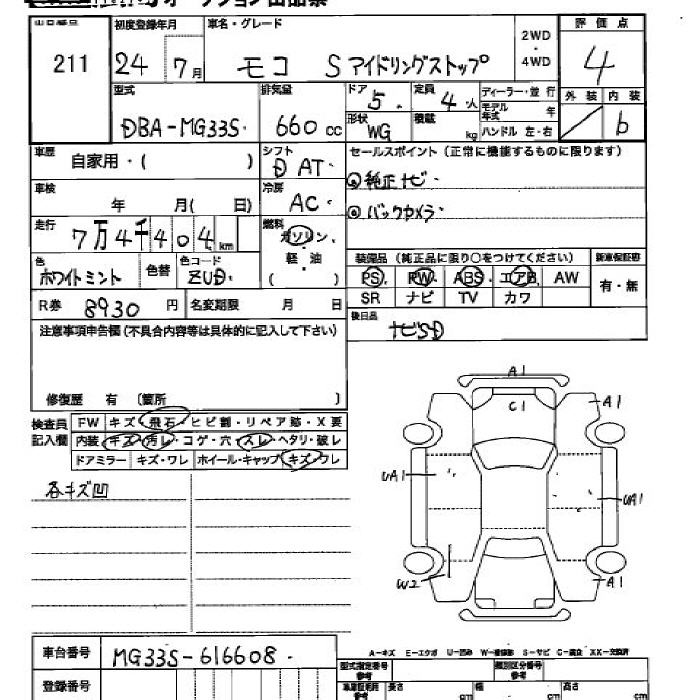 初度登録年月 車名・グレード 2WD・4WD 評価点
211 24年 7月 モコ S アイドリングストップ 4
型式 排気量 ドア 5. 定員 4人 ディーラー・並行 外装 内装
DBA-MG33S. 660cc 形状 WG 積載 kg モデル年式 年 b
ハンドル 左・右
車歴 自家用・( ) シフト D AT セールスポイント(正常に機能するものに限ります)
車検 年 月( 日) 冷房 AC. 純正ナビ・
バックカメラ.
走行 7万4千404km 燃料 ガソリン・軽油( )
色 ホワイトミント 色替 色コード ZUD. 装備品(純正品に限り○をつけてください) 新車保証書
PS PW ABS エアB AW 有・無
SR ナビ TV カワ
R券 8930円 名変期限 月 日
後日品 ナビSD
注意事項申告欄(不具合内容等は具体的に記入して下さい)
修復歴 有 〔箇所 〕
検査員記入欄 FW キズ・飛石・ヒビ割・リペア跡・X要
内装 キズ・汚レ・コゲ・穴・スレ・ヘタリ・破レ
ドアミラー キズ・ワレ ホイール・キャップ キズ・ワレ
各キズ凹
A1
C1
A1
UA1
UA1
W2
A1
A-キズ E-エクボ U-凹み W-補修跡 S-サビ C-腐食 XX-交換済
車台番号 MG33S-616608.
型式指定番号 参考 類別区分番号 参考
登録番号 長さ cm 幅 cm 高さ cm